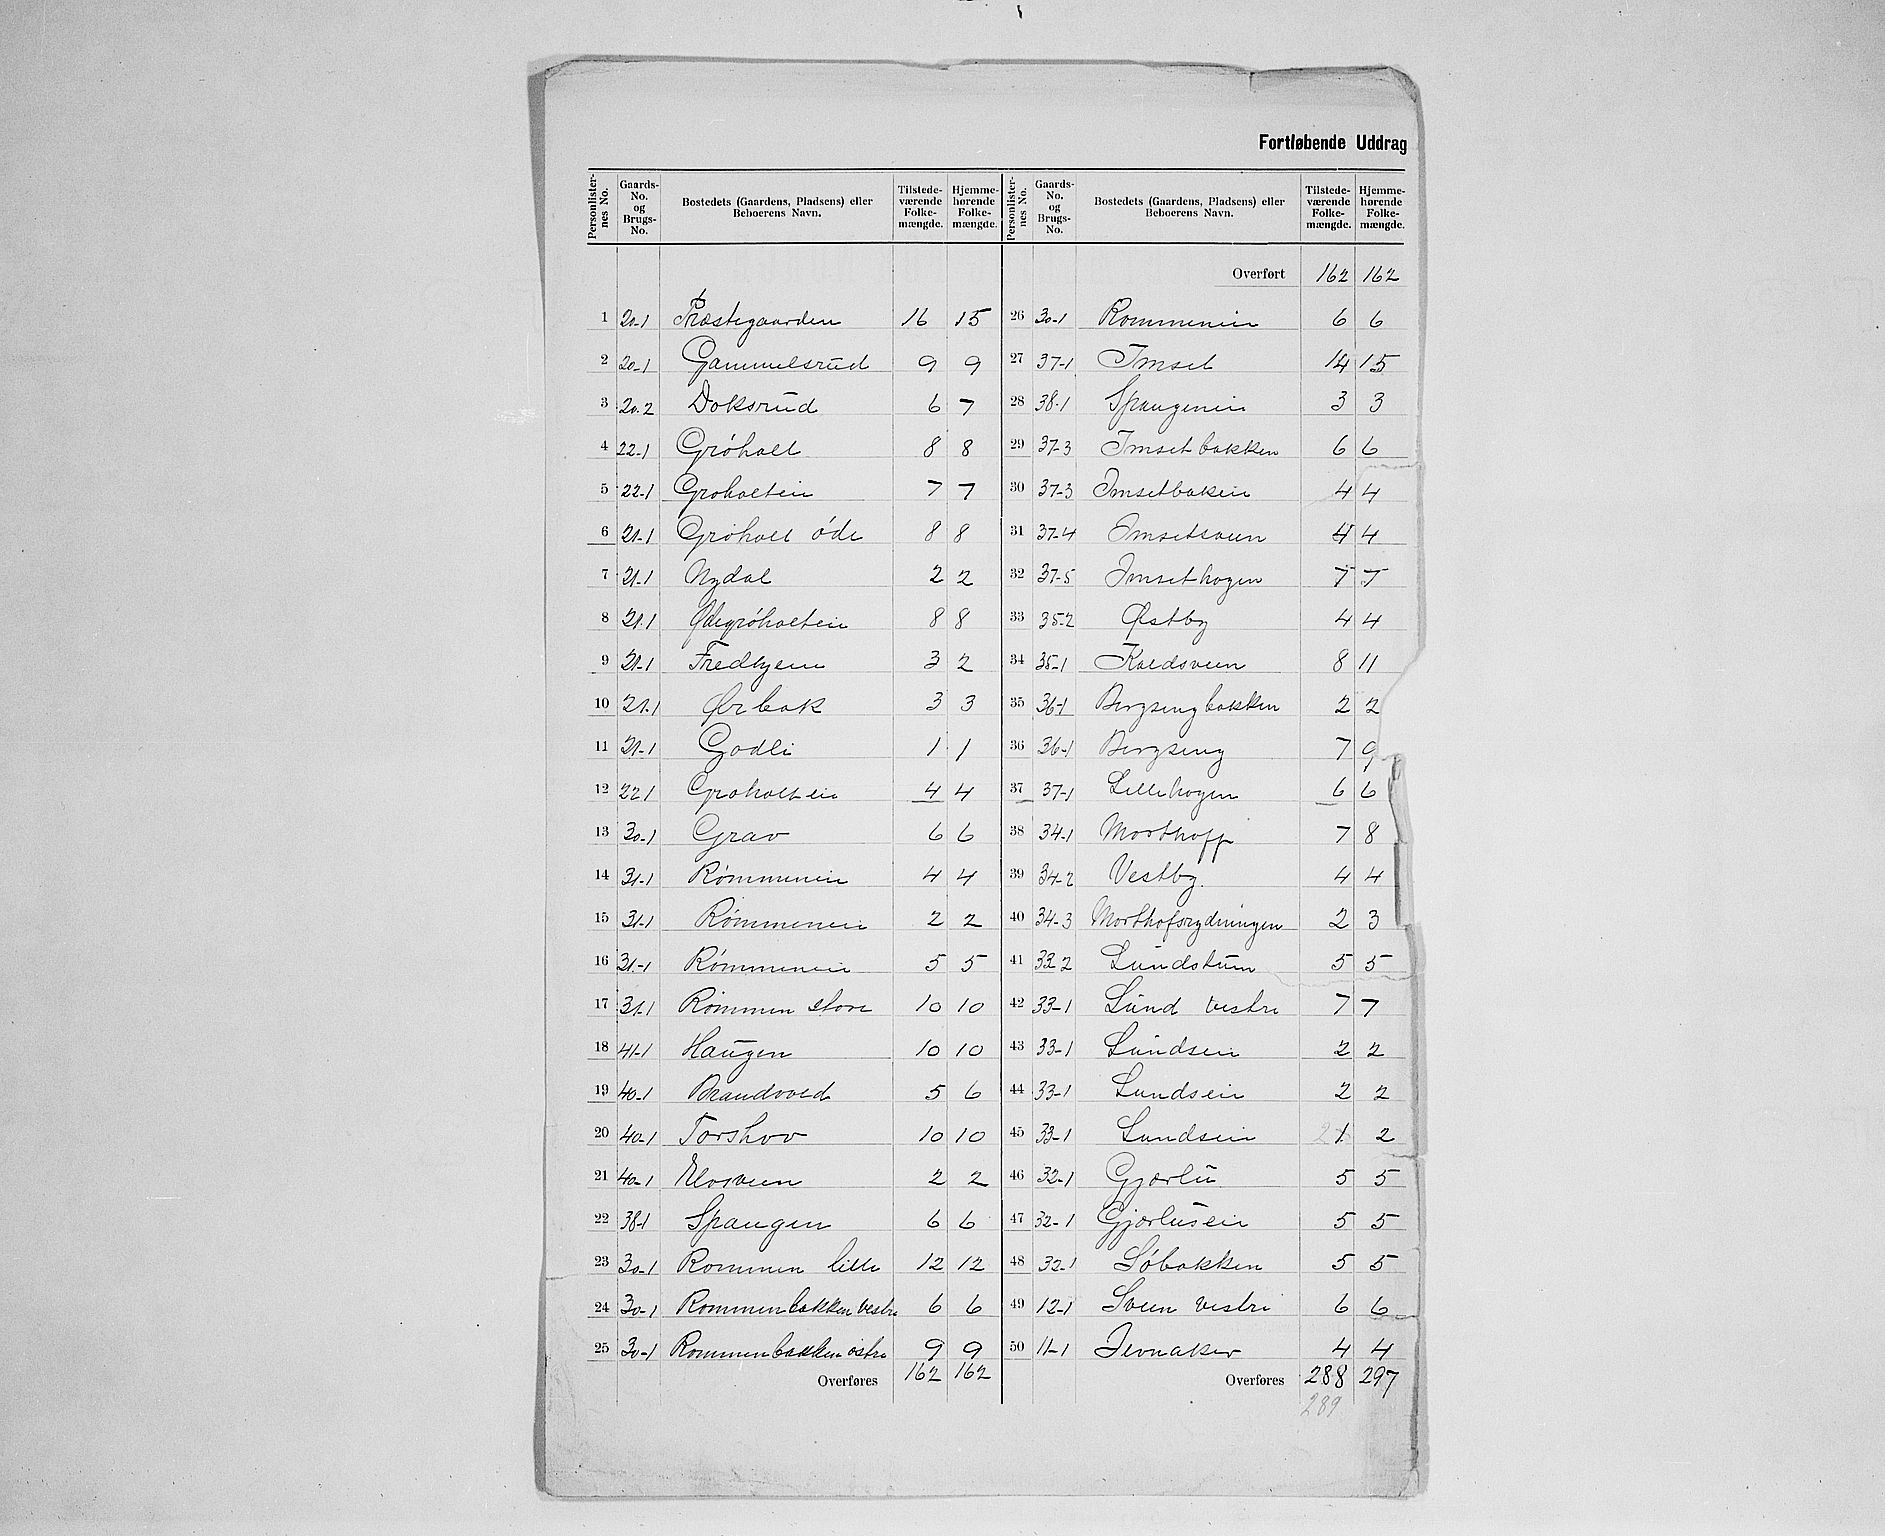 Fortløbende Uddrag
Personlister-nes No. Gaards-No. og Brugs-No. Bostedets (Gaardens, Pladsens) eller Beboerens Navn. Tilstede-værende Folke-mængde. Hjemme-hørende Folke-mængde.
1 20-1 Præstegaarden 16 15
2 20-1 Gammelsrud 9 9
3 20-2 Doksrud 6 7
4 22-1 Gróholt 8 8
5 22-1 Groholteie 7 7
6 21-1 Gróholt óde 8 8
7 21-1 Nydal 2 2
8 21-1 Ødegróholteie 8 8
9 21-1 Fredhjem 3 2
10 21-1 Ørbak 3 3
11 21-1 Godli 1 1
12 22-1 Groholteie 4 4
13 30-1 Grav 6 6
14 31-1 Rómmeneie 4 4
15 31-1 Rómmeneie 2 2
16 31-1 Rómmeneie 5 5
17 31-1 Rómmen store 10 10
18 41-1 Haugen 10 10
19 40-1 Brandvold 5 6
20 40-1 Torshov 10 10
21 40-1 Elosveen 2 2
22 38-1 Spangen 6 6
23 30-1 Rommen lille 12 12
24 30-1 Rommenbakken vestre 6 6
25 30-1 Rommenbakken óstre 9 9
Overføres 162 162
Personlister-nes No. Gaards-No. og Brugs-No. Bostedets (Gaardens, Pladsens) eller Beboerens Navn. Tilstede-værende Folke-mængde. Hjemme-hørende Folke-mængde.
Overført 162 162
26 30-1 Rommeneie 6 6
27 37-1 Imset 14 15
28 38-1 Spangeneie 3 3
29 37-3 Imsetbakken 6 6
30 37-3 Imsetbakeie 4 4
31 37-4 Imsetsveen 4 4
32 37-5 Imsethagen 7 7
33 35-2 Østby 4 4
34 35-1 Koldsveen 8 11
35 36-1 Bergsengbakken 2 2
36 36-1 Bergseng 7 9
37 37-1 Lillehagen 6 6
38 34-1 Morthoff 7 8
39 34-2 Vestby. 4 4
40 34-3 Morthofsrydningen 2 3
41 33-2 Lundstum 5 5
42 33-1 Lund vestre 7 7
43 33-1 Lundseie 2 2
44 33-1 Lundseie 2 2
45 33-1 Lundseie 1 2
46 32-1 Gjærlu 5 5
47 32-1 Gjærluseie 5 5
48 32-1 Sóbakken 5 5
49 12-1 Sveen vestre 6 6
50 11-1 Jevnaker 4 4
Overføres 288 297
289